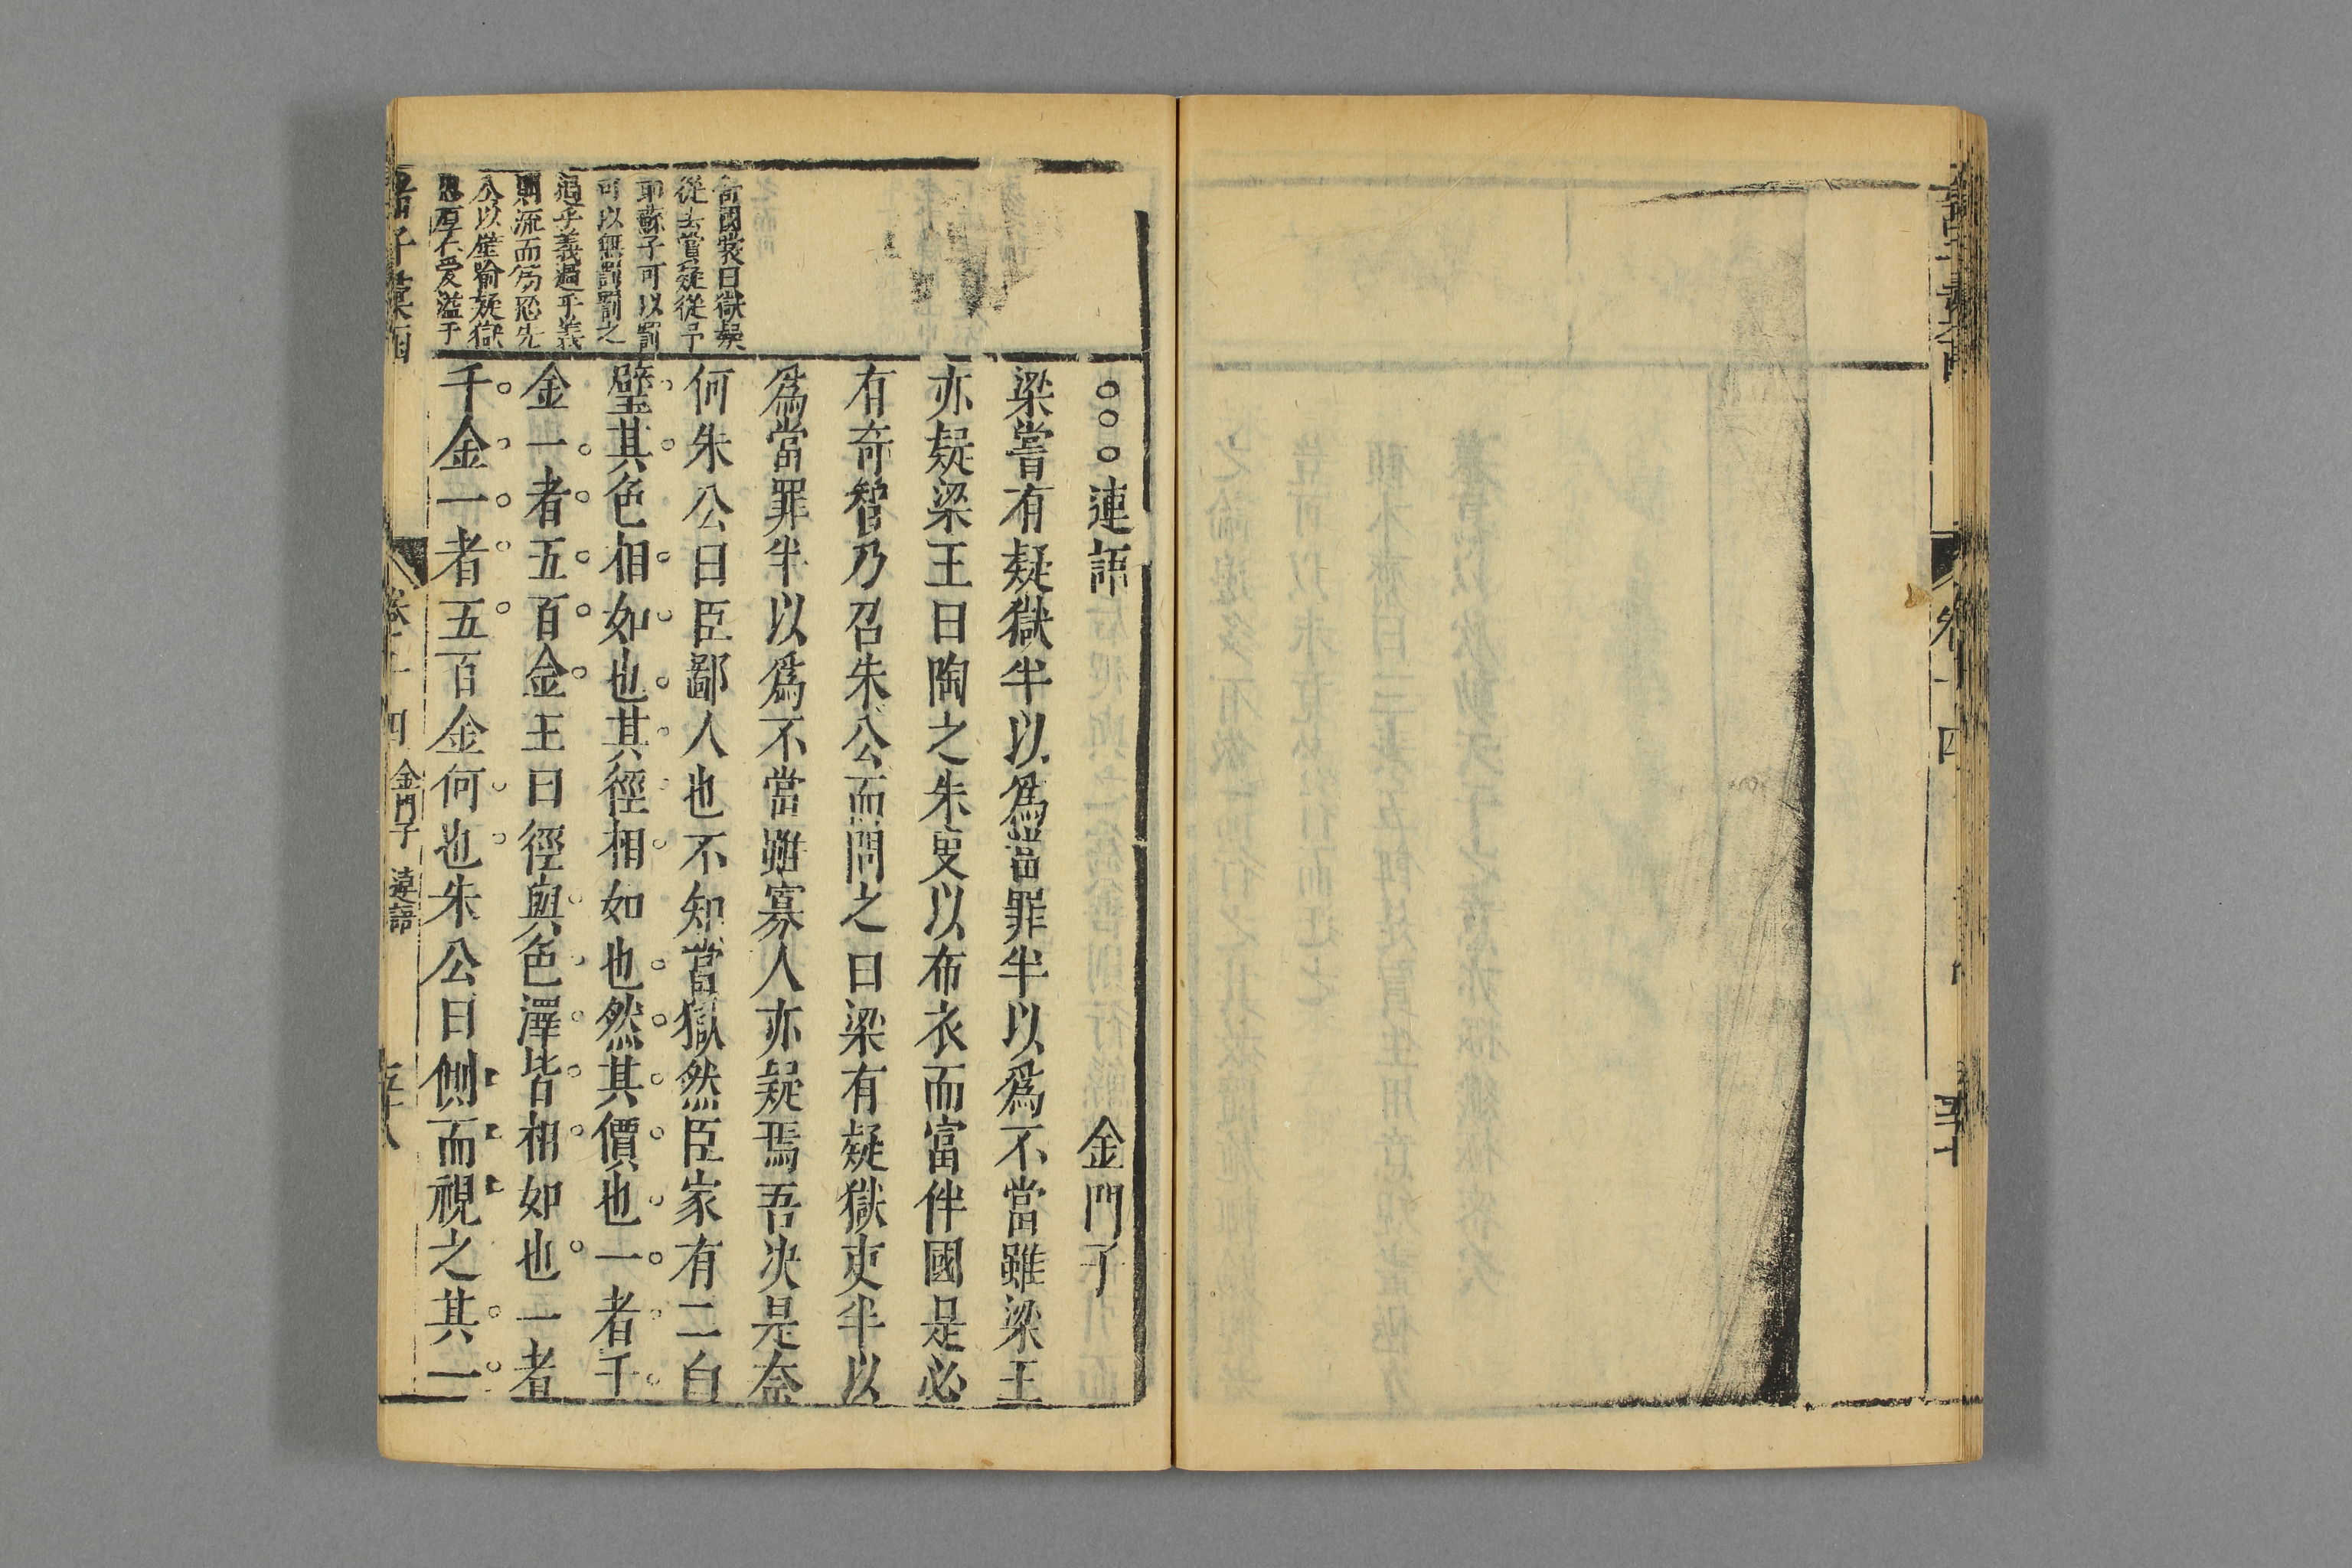 卷十四
四十七
連語
金門子
梁嘗有疑獄半以為當罪半以為不當雖梁王
亦疑梁王曰陶之朱叟以布衣而富侔國是必
有奇智乃召朱公而問之曰梁有疑獄吏半以
為當罪半以為不當雖寡人亦疑焉吾決是奈
何朱公曰臣鄙人也不知當獄然臣家有二白
璧其色相如也其徑相如也然其價也一者千
金一者五百金王曰徑與色澤皆相如也一者
千金一者五百金何也朱公曰側而視之其一
裳曰獄疑
從去賞疑從予
耶蘇子可以罰
可以無罰罰之
過乎義過乎義
則流而為忍先
公以璧喻疑獄
忠厚不受溢于
卷十四
金門子
連語
五十八